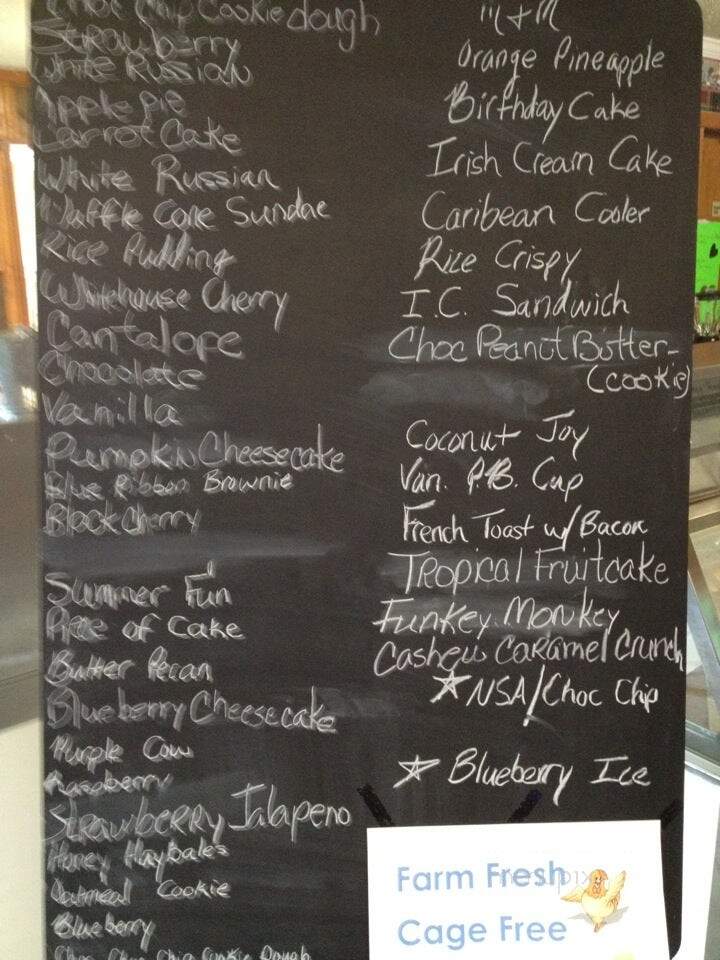 Choc Chip Cookie dough
Strawberry
White Russian
Apple pie
Carrot Cake
White Russian
Waffle Cone Sundae
Rice Pudding
Whitehouse Cherry
Cantalope
Chocolate
Vanilla
Pumpkin Cheesecake
Blue Ribbon Brownie
Black Cherry
Summer Fun
Piece of Cake
Butter Pecan
Blueberry Cheesecake
Purple Cow
Raspberry
Strawberry Jalapeno
Honey Haybales
Oatmeal Cookie
Blueberry
Choc Choc Chip Cookie Dough
m+m
Orange Pineapple
Birthday Cake
Irish Cream Cake
Caribean Cooler
Rice Crispy
I.C. Sandwich
Choc Peanut Butter-
(cookie)
Coconut Joy
Van. P.B. Cup
French Toast w/ Bacon
Tropical Fruitcake
Funkey Monkey
Cashew Caramel Crunch
☆ NSA/Choc Chip
☆ Blueberry Ice
Farm Fresh
Cage Free